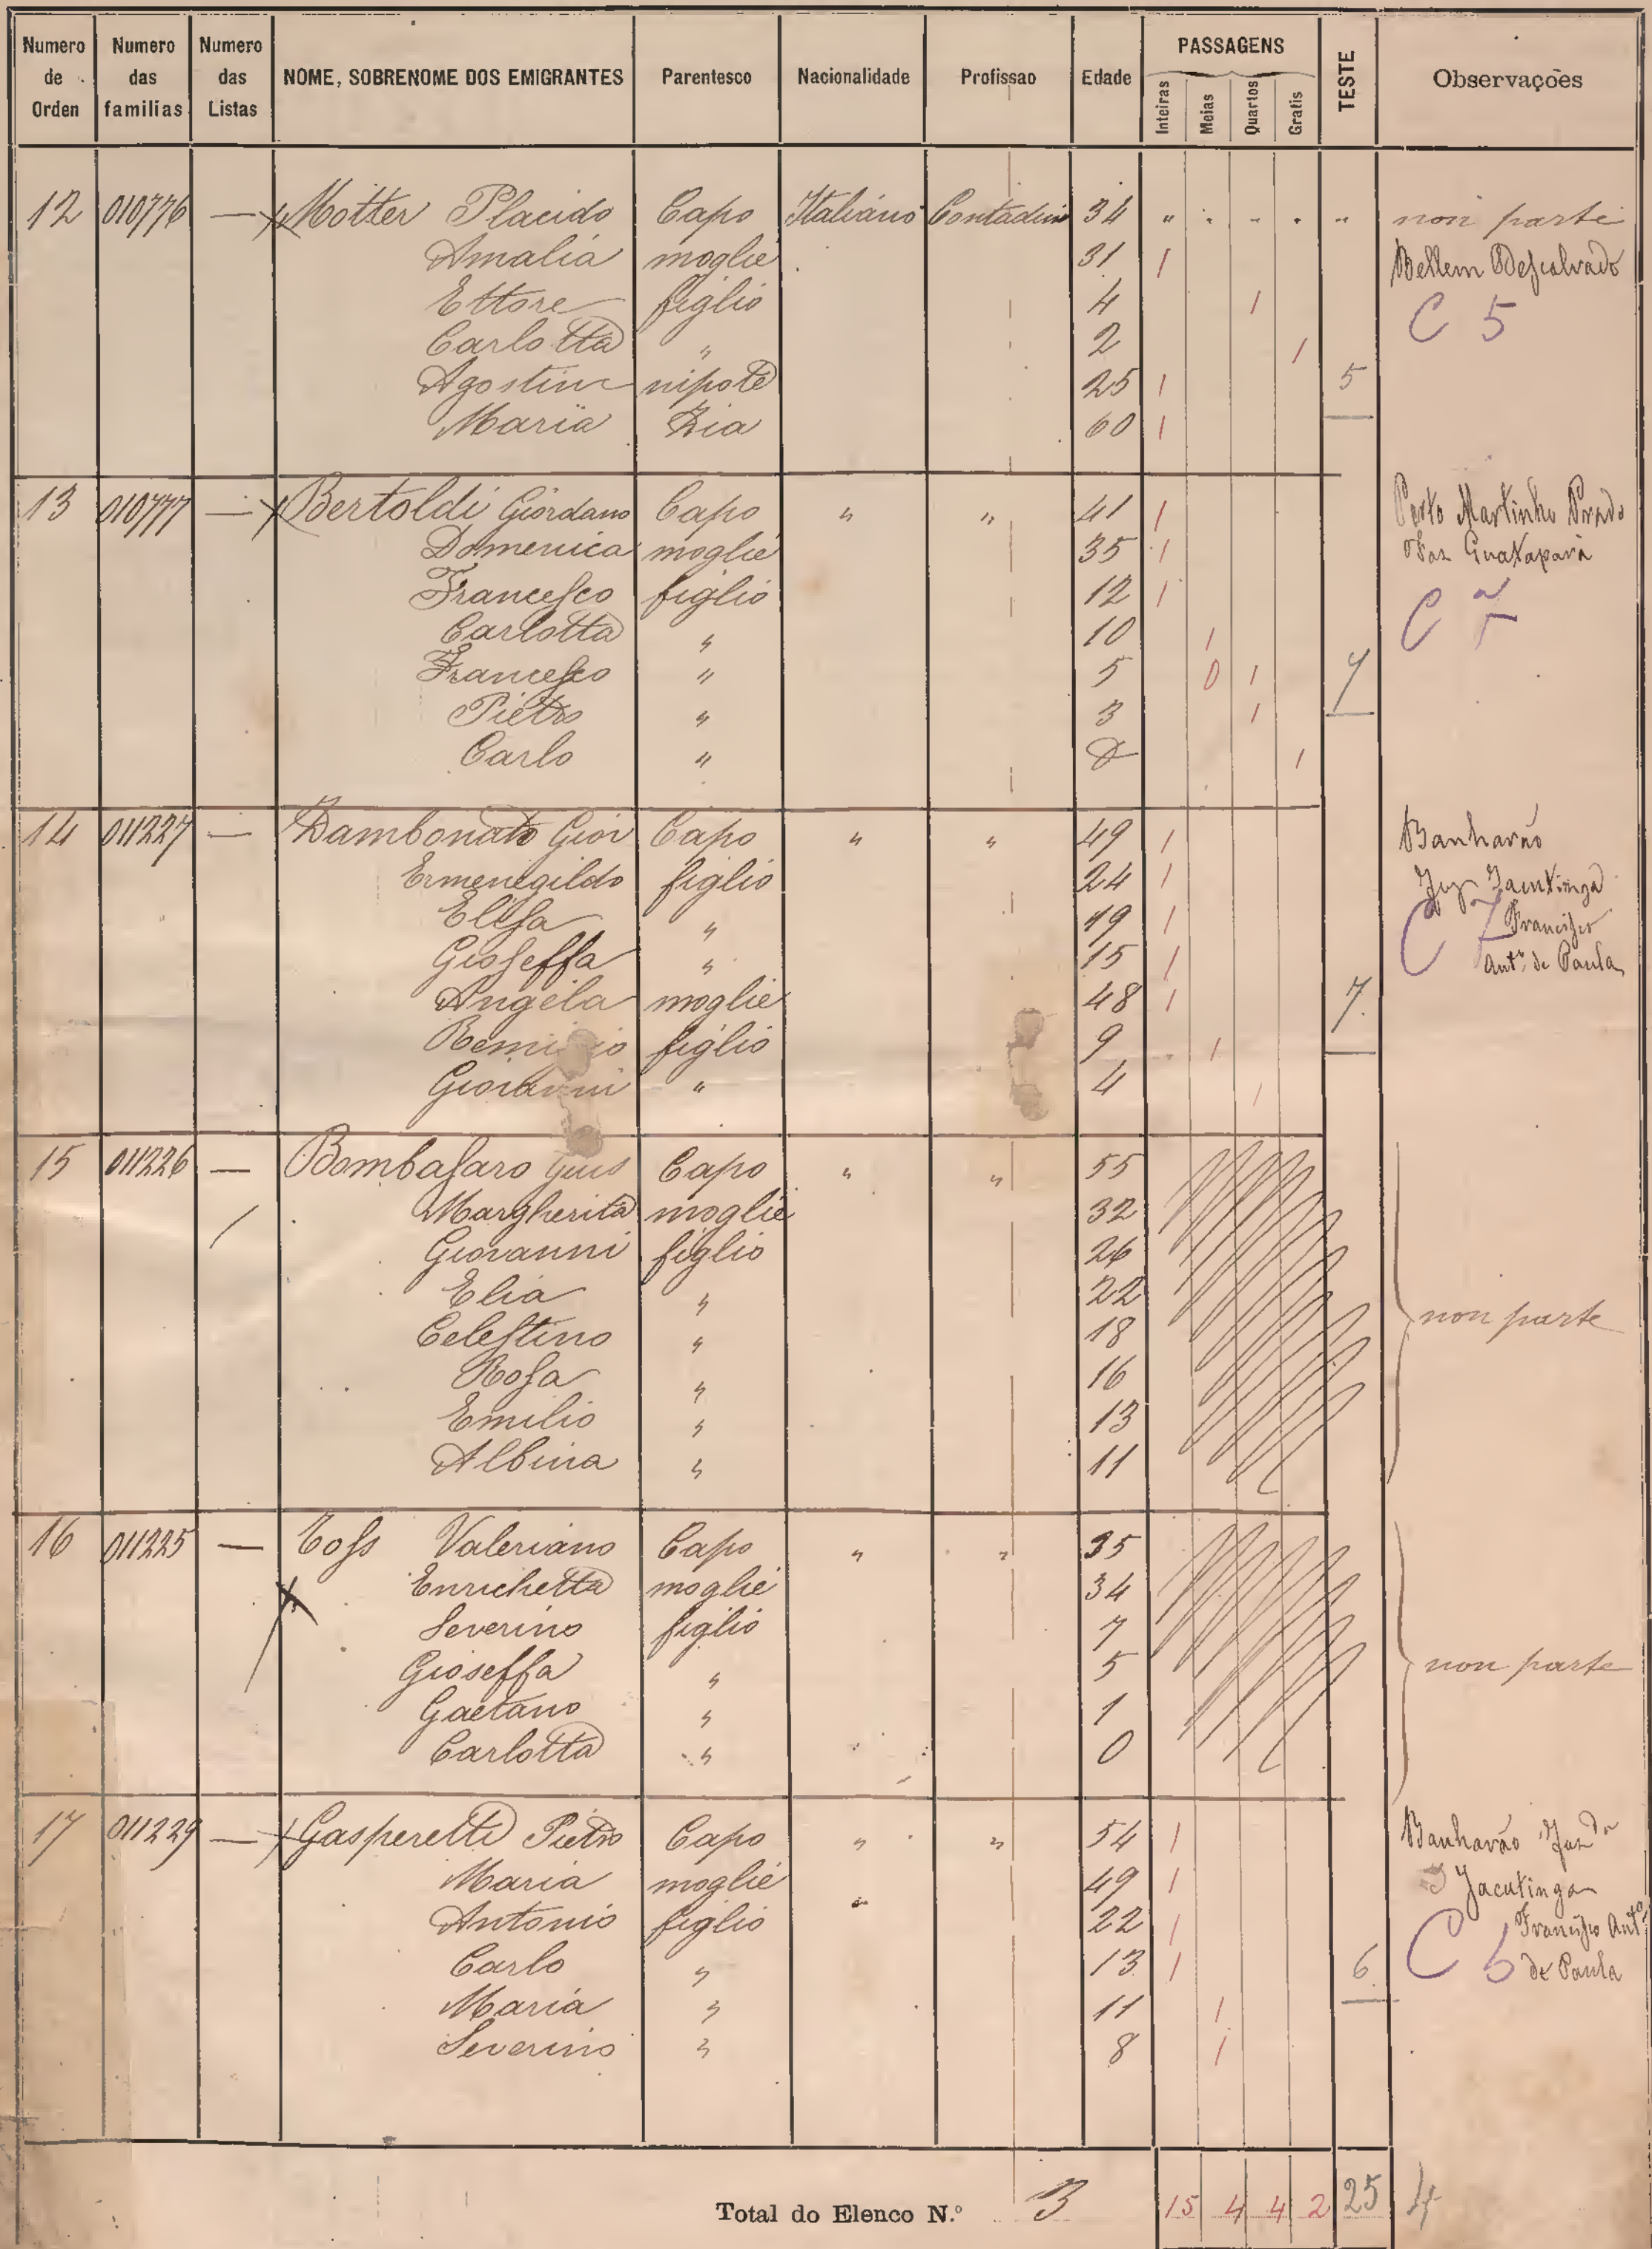 Numero de Orden | Numero das familias | Numero das Listas | NOME, SOBRENOME DOS EMIGRANTES | Parentesco | Nacionalidade | Profissao | Edade | PASSAGENS Inteiras Meias Quartos Gratis | TESTE | Observações
12 010776 — x Motter Placido Capo Italiano Contadino 34 " " " " " non parte
Amalia moglie 31 1 Bellem Descalvado
Ettore figlio 4 1 C 5
Carlotta " 2 1
Agostino nipote 25 1 5
Maria Zia 60 1
13 010777 — x Bertoldi Giordano Capo " " 41 1 Porto Martinho Prado
Domenica moglie 35 1 Faz Guatapará
Francesco figlio 12 1 C 7
Carlotta " 10 1
Francesco " 5 0 1 7
Pietro " 3 1
Carlo " 0 1
14 011227 — Dambonato Giov Capo " " 49 1 Banharão
Ermenegildo figlio 24 1 Jacutinga
Elisa " 19 1 C 7 Francisco
Gioseffa " 15 1 Antº de Paula
Angela moglie 48 1 7.
Remigio figlio 9 1
Giovanni " 4 1
15 011226 — Bombasaro Capo " " 55
Margherita moglie 32
Giovanni figlio 26
Elia " 22
Celestino " 18 non parte
Rosa " 16
Emilio " 13
Albina " 11
16 011225 — Toss Valeriano Capo " " 35
Enrichetta moglie 34
Severino figlio 7
Gioseffa " 5 non parte
Gaetano " 1
Carlotta " 0
17 011229 — x Gasperetti Pietro Capo " " 54 1 Banharão Fazda
Maria moglie 49 1 Jacutinga
Antonio figlio " 22 1 Francisco Antº
Carlo " 13 1 6. C 6 de Paula
Maria " 11 1
Severino " 8 1
Total do Elenco N.º 3 15 4 4 2 25 4